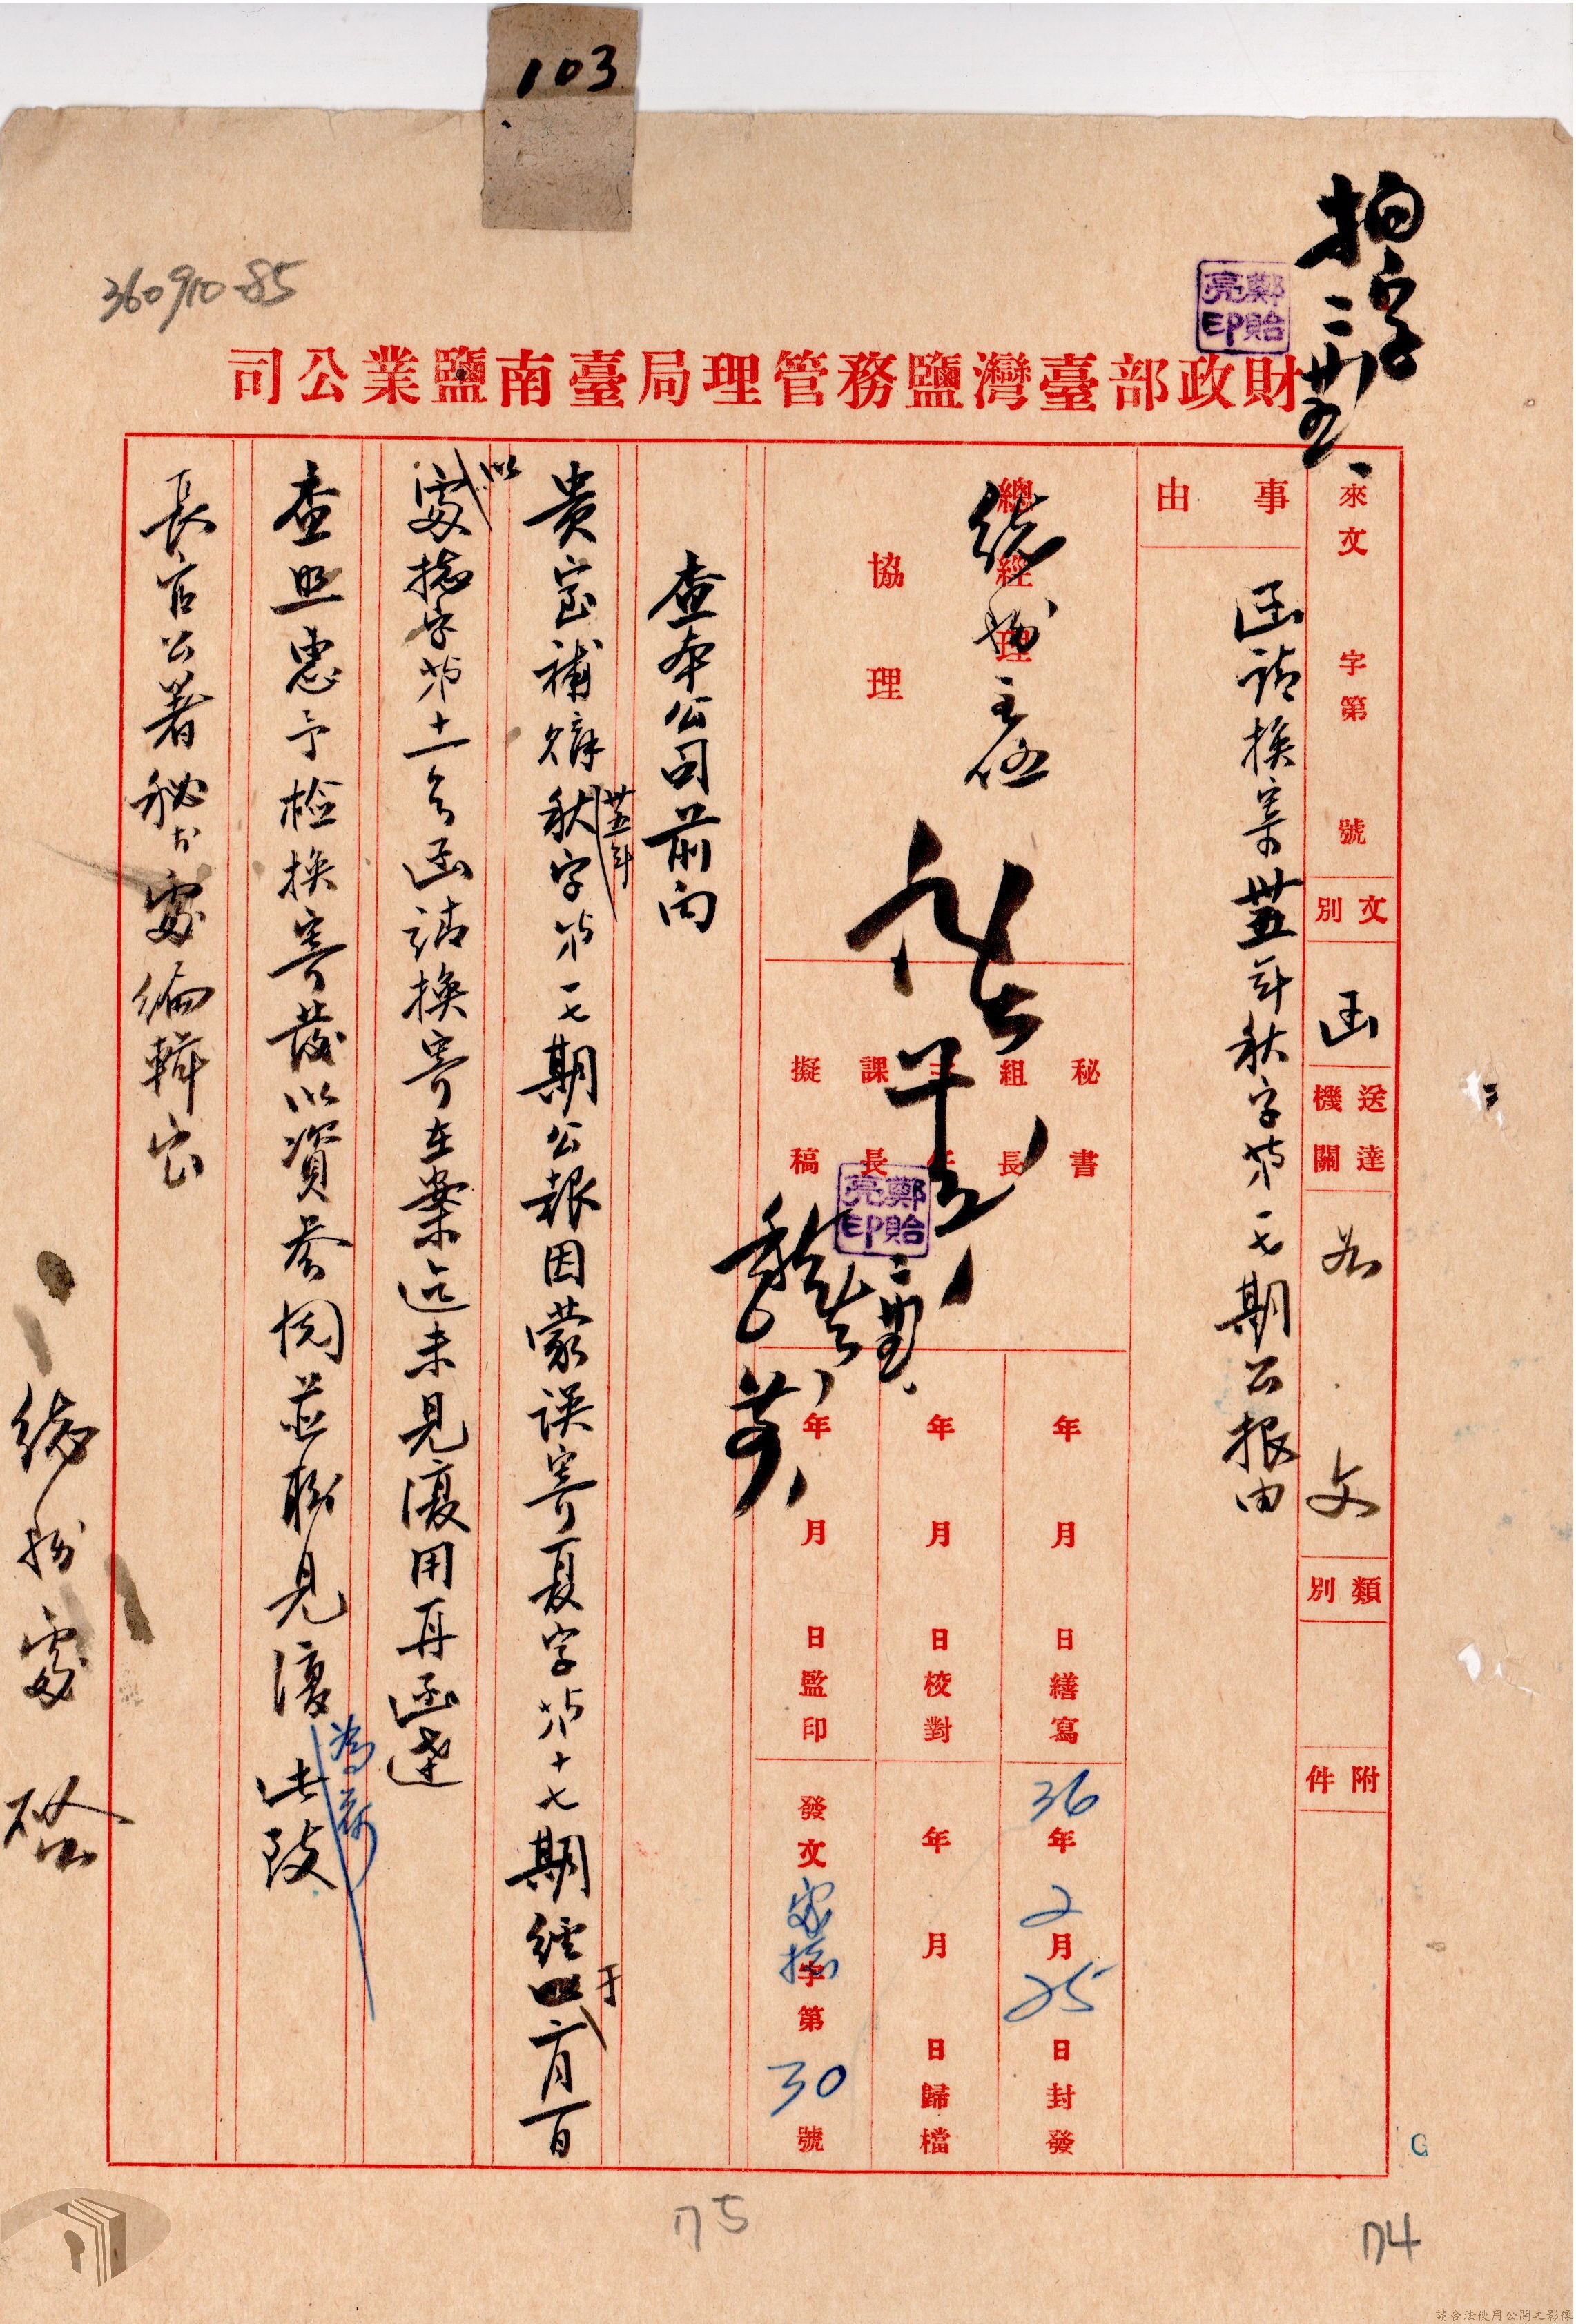 103
360910-85
財政部臺灣鹽務管理局臺南鹽業公司
鄭貽亮印
來文 字第 號
文別 函
送達機關
文
類別
附件
事由
函請換寄卅五年秋字第一七期公報由
總經理
協理
總務主任
秘書
組長
主任
課長
擬稿
鄭貽亮印
年 月 日繕寫
年 月 日校對
年 月 日監印
36年2月25日封發
年 月 日歸檔
發文 總字第30號
查本公司前向
貴室補購卅五年秋字第一七期公報因蒙誤寄夏字第十七期經于 月 日
以 處總字第十一號函請換寄在案迄未見復用再函達
查照惠予檢換寄發以資參閱並盼見復為荷 此致
長官公署秘書處編輯室
總務處 啟
175
174
G
請合法使用公開之影像